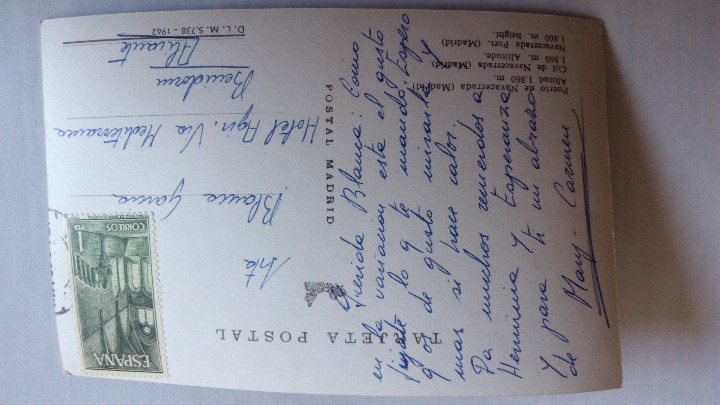 Puerto de Navacerrada (Madrid)
Altitud 1.860 m.
Col de Navacerrada (Madrid)
1.860 m. Altitude.
Navacerrada Port. (Madrid)
1.860 m. height.
D. L. M. 5.738 - 1962
TARJETA POSTAL
POSTAL MADRID
Querida Blanca: Como
en la variacion esta el gusto
fijate lo q te mando. Espero
q os de gusto mirarla y
mas si hace calor.
Da muchos recuerdos a
Herminia y Esperanza
Y para ti un abrazo
de Mary-Carmen
ESPAÑA
CORREOS
1 PTA
Srta
Blanca
Hotel Agir. Via Mediterranea
Benidorm
Alicante